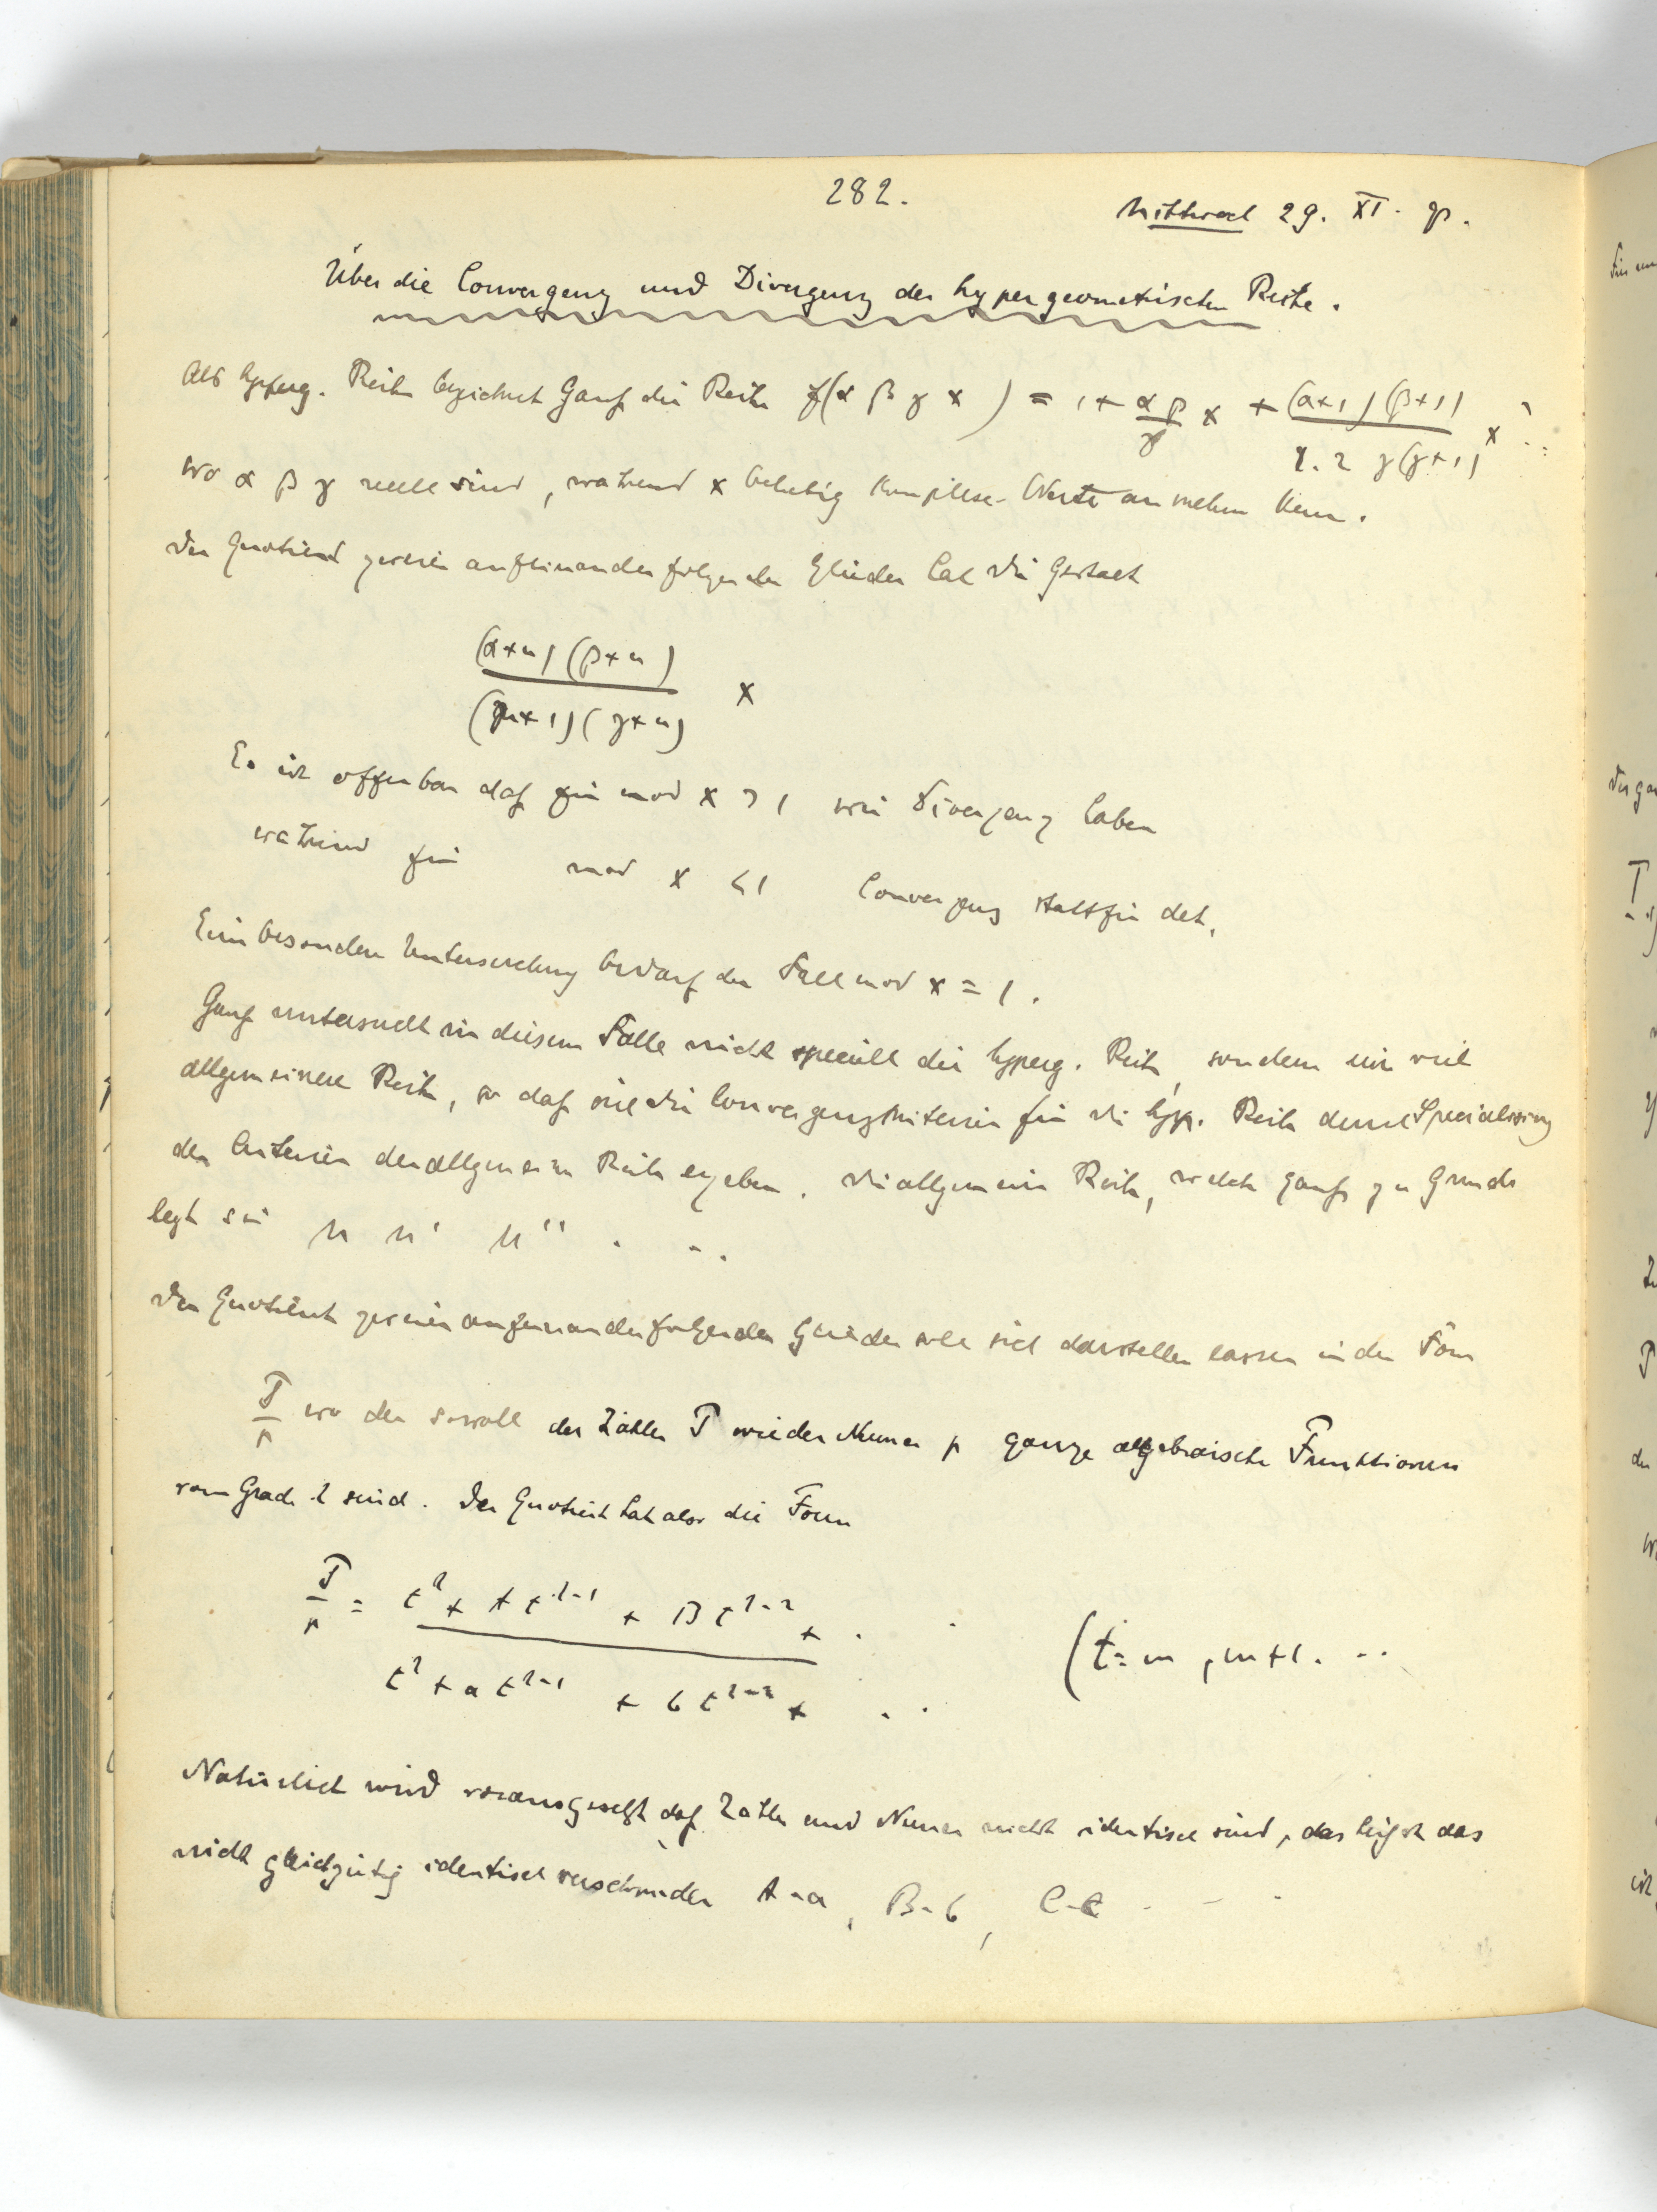 282.
Mittwoch 29. XI.
Über die Convergenz und Divergenz der hypergeometrischen Reihe.
Als hyperg. Reihe bezeichnet Gauß die Reihe f(α β γ x) = 1 + αβ/γ x + (α+1)(β+1)/1.2 γ(γ+1) x² ...
wo α β γ reell sind, während x beliebig komplexe Werte annehmen kann.
Der Quotient zweier aufeinanderfolgender Glieder hat die Gestalt
(α+n)(β+n)/(n+1)(γ+n) x
Es ist offenbar daß für mod x > 1 wir Divergenz haben
während für mod x < 1 Convergenz stattfindet.
Eine besondere Untersuchung bedarf der Fall mod x = 1.
Gauß untersucht in diesem Falle nicht speciell die hyperg. Reihe, sondern eine viel
allgemeinere Reihe, so daß sich die Convergenzkriterien für die hyp. Reihe durch Specialisirung
der Criterien der allgemeinen Reihe ergeben. Die allgemeine Reihe, welche Gauß zu Grunde
legt sei M M' M'' . . .
Der Quotient zweier aufeinanderfolgender Glieder soll sich darstellen lassen in der Form
P/p wo der sowohl der Zähler P wie der Nenner p ganze algebraische Funktionen
vom Grade λ sind. Der Quotient hat also die Form
P/p = t^λ + A t^λ-1 + B t^λ-2 + . . / t^λ + a t^λ-1 + b t^λ-2 + . . (t = m, m+1. ..
Natürlich wird vorausgesetzt daß Zähler und Nenner nicht identisch sind, das heißt das
nicht gleichzeitig identisch verschwinden A-a, B-b, C-c - - -